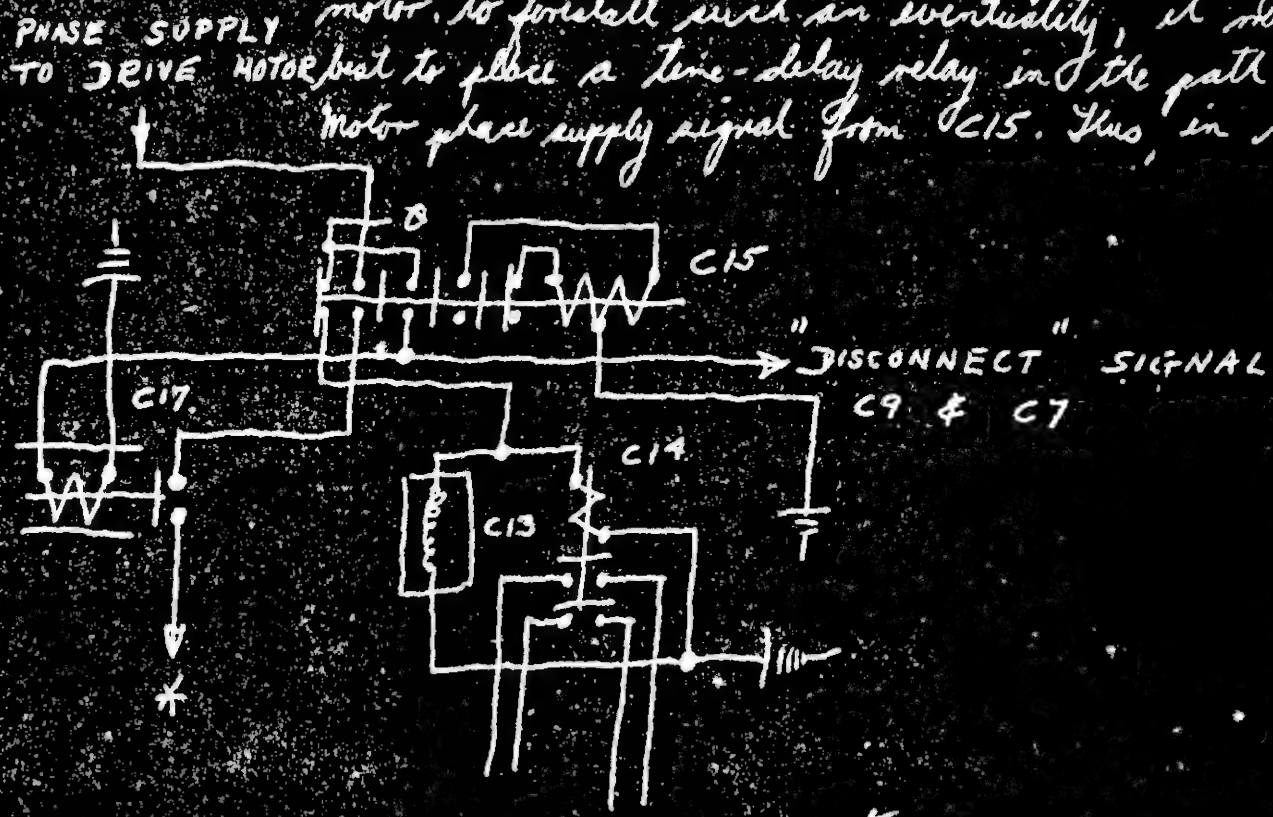 PHASE SUPPLY
TO DRIVE MOTOR
motor. to forestall such an eventuality, it
best to place a time-delay relay in the path
Motor phase supply signal from C15. Thus, in
C15
"DISCONNECT" SIGNAL
C9 & C7
C17.
C14
C13